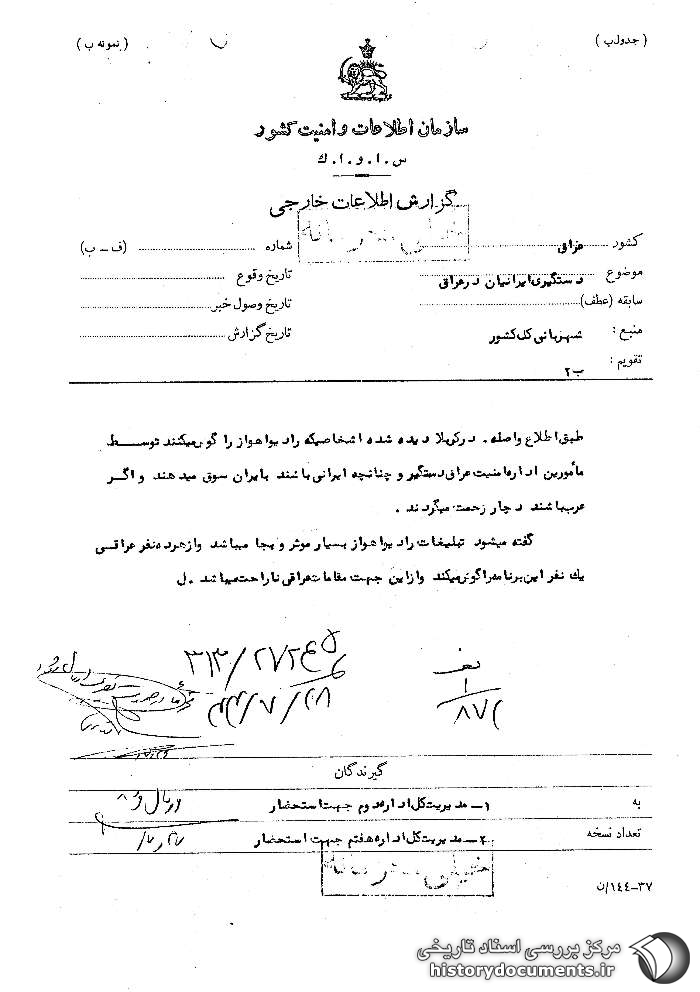 ( جدول ب )
( نمونه ب )
سازمان اطلاعات و امنیت کشور
س . ا . و . ا . ک
گزارش اطلاعات خارجی
خیلی محرمانه
کشور عراق
شماره (ف – ب)
موضوع دستگیری ایرانیان در عراق
تاریخ وقوع
سابقه (عطف)
تاریخ وصول خبر
منبع : شهربانی کل کشور
تاریخ گزارش
تقویم : ب ۲
طبق اطلاع واصله . در کربلا دیده شده اشخاصیکه رادیو اهواز را گوش میکنند توسط
مأمورین اداره امنیت عراق دستگیر و چنانچه ایرانی باشند بایران سوق میدهند و اگر
عرب باشند دچار زحمت میگردند .
گفته میشود تبلیغات رادیو اهواز بسیار موثر و بجا میباشد و از هر ده نفر عراقی
یک نفر این برنامه را گوش میکند و از این جهت مقامات عراقی ناراحت میباشد . ل
۳۱۳/۲۷۲
۸۷۲
گیرندگان
به ۱ – مدیریت کل اداره دوم جهت استحضار
تعداد نسخه ۲ – مدیریت کل اداره هفتم جهت استحضار
خیلی محرمانه
۳۷–۱٤٤/ن
مرکز بررسی اسناد تاریخی
historydocuments.ir